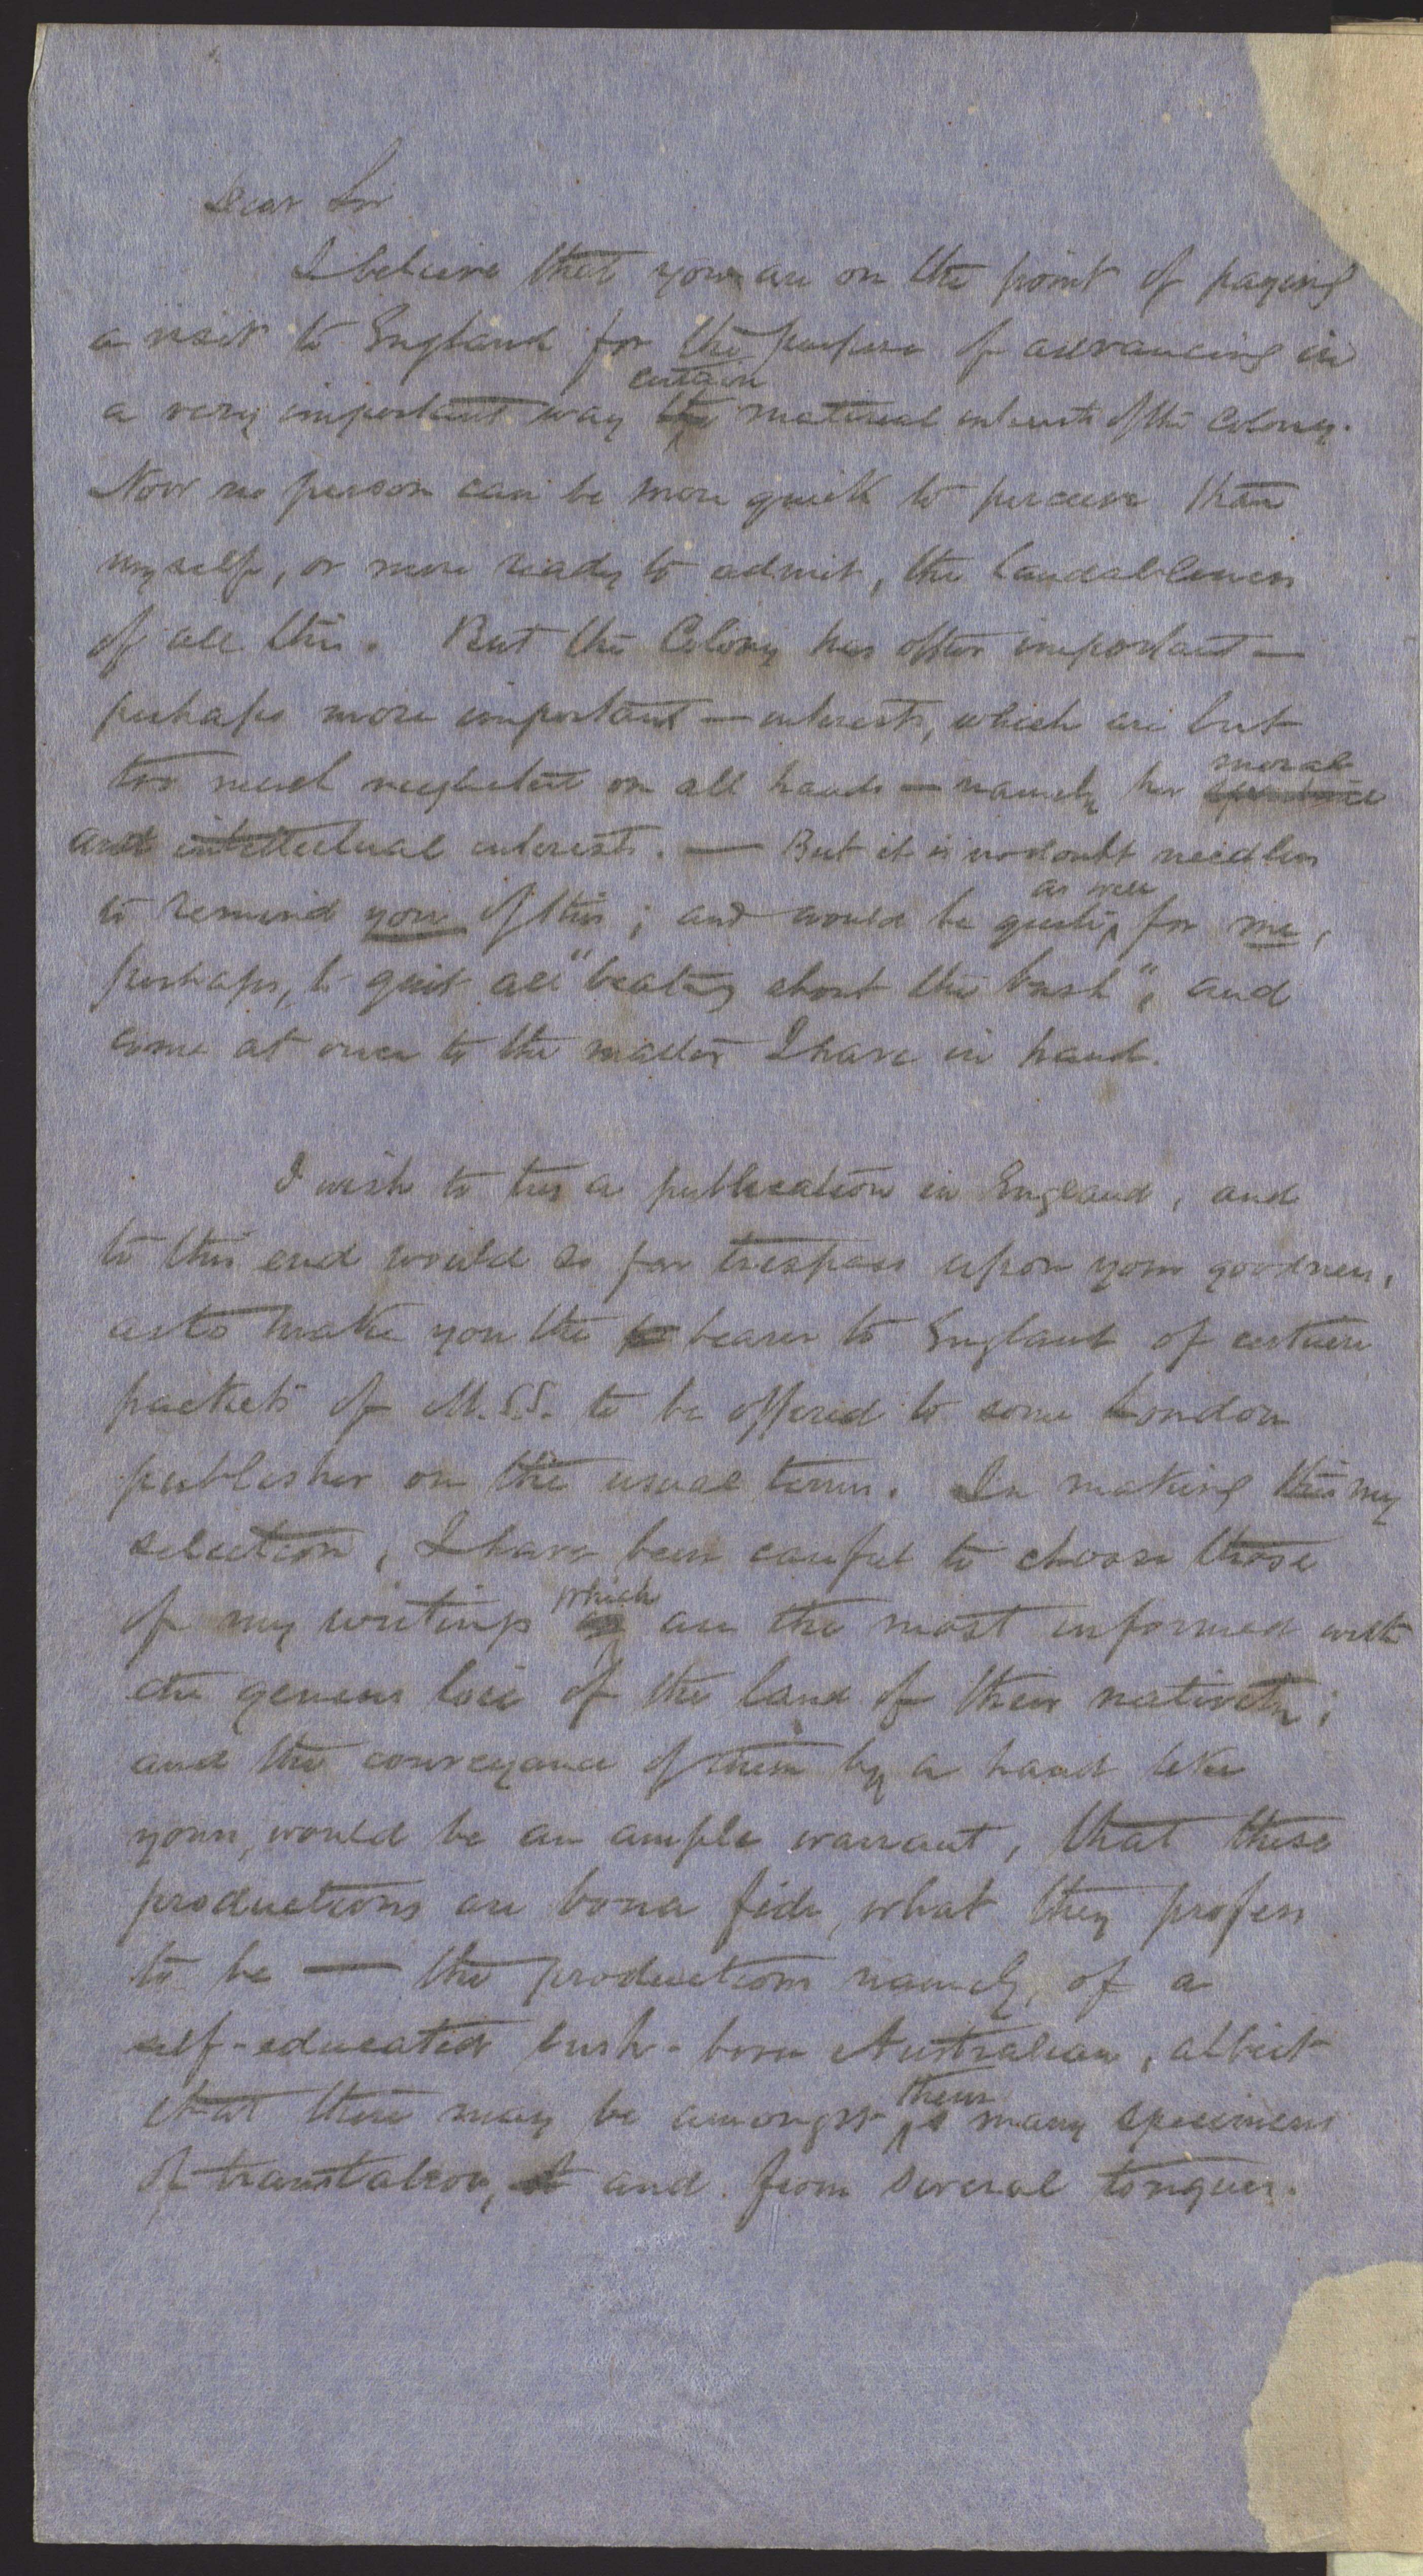 Dear Sir
I believe that you are on the point of paying
a visit to England for the purpose of advancing in
a very important way the certain material interests of the Colony.
Now no person can be more quick to perceive than
myself, or more ready to admit, the laudableness
of all this. But the Colony has other important —
perhaps more important — interests, which are but
too much neglected on all hands — namely her moral
and intellectual interests. — But it is no doubt needless
to remind you of this; and would be quite as well for me,
perhaps, to quit all "beating about the bush", and
come at once to the matter I have in hand.
I wish to try a publication in England, and
to this end would so far trespass upon your goodness,
as to make you the bearer to England of certain
packets of M.S.S. to be offered to some London
publisher on the usual terms. In making this my
selection, I have been careful to choose those
of my writings as which are the most informed with
the genius loci of the land of their nativity;
and the conveyance of them by a hand like
yours, would be an ample warrant, that these
productions are bona fide, what they profess
to be — the productions namely, of a
self-educated bush-born Australian, albeit
that there may be amongst them many specimens
of translation, and from several tongues.